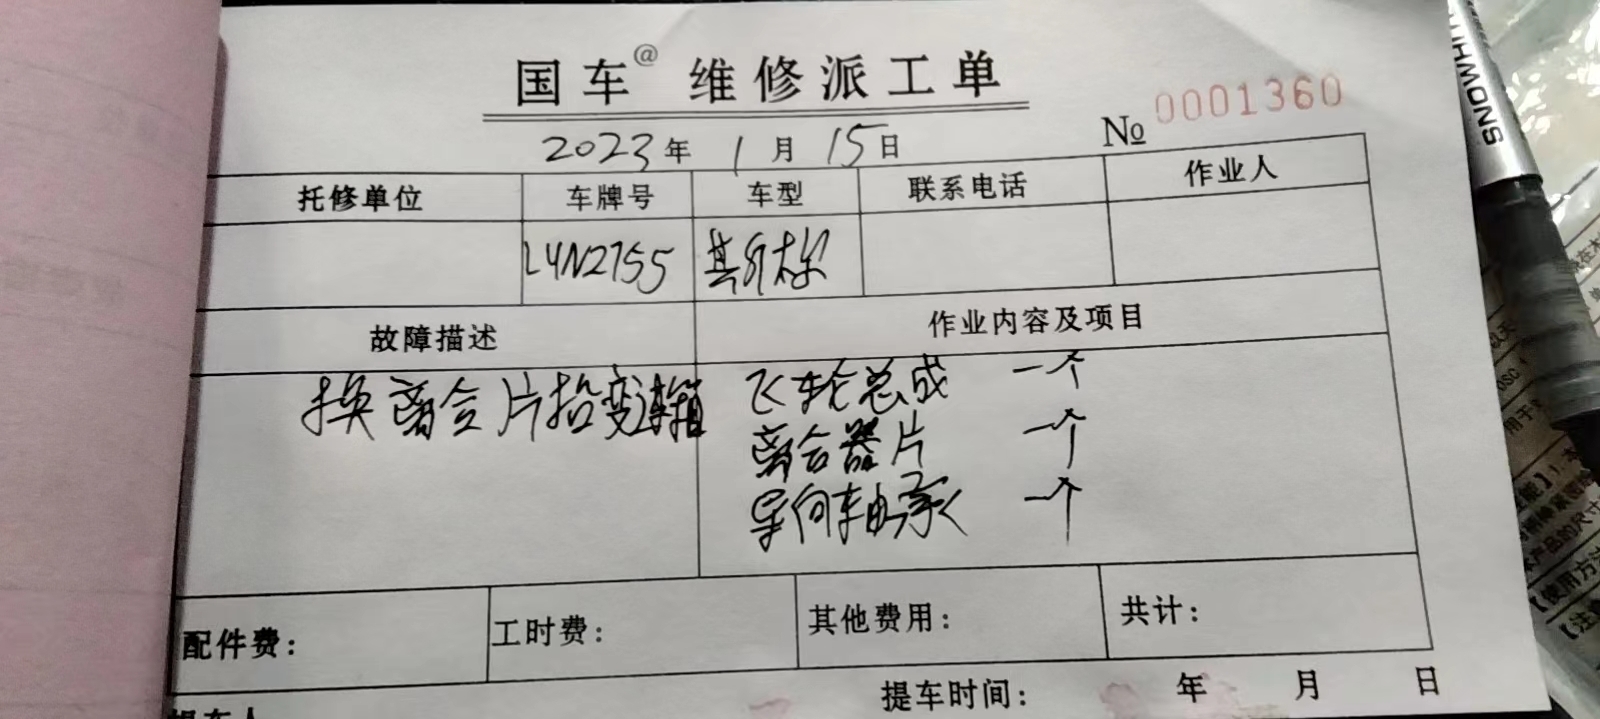 国车@ 维修派工单
№ 0001360
2023年 1月 15日
托修单位 车牌号 车型 联系电话 作业人
L4N2755
故障描述 作业内容及项目
换离合片抬变速箱 飞轮总成 一个
离合器片 一个
导向轴承 一个
配件费: 工时费: 其他费用: 共计:
提车时间: 年 月 日
提车人
SNOWHITE